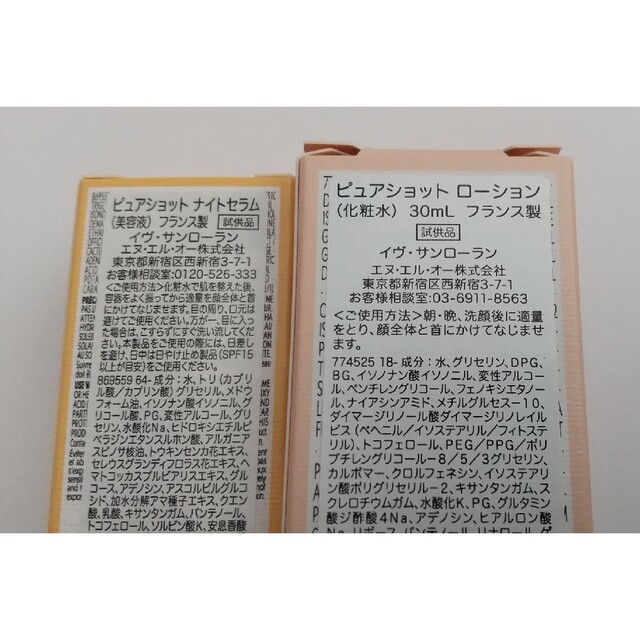 ピュアショット ナイトセラム
(美容液) フランス製 試供品
イヴ・サンローラン
エヌ・エル・オー株式会社
東京都新宿区西新宿3-7-1
お客様相談室:0120-526-333
<ご使用方法>化粧水で肌を整えた後、
容器をよく振ってから適量を顔全体と首に
かけてなじませます。目の周り、口元は
避けてご使用ください。万が一、目に入っ
た場合は、こすらずにすぐ洗い流してくだ
さい。本製品をご使用の際には、日差し
を避け、日中は日やけ止め製品(SPF15
以上が目安)をご使用ください。
869559 64- 成分:水、トリ(カプリ
ル酸/カプリン酸)グリセリル、メドウ
フォーム油、イソノナン酸イソノニル、グ
リコール酸、PG、変性アルコール、グリ
セリン、水酸化Na、ヒドロキシエチルピ
ペラジンエタンスルホン酸、アルガニア
スピノサ核油、トウキンセンカ花エキス、
セレウスグランディフロラス花エキス、ヘ
マトコッカスプルビアリスエキス、グル
コース、アデノシン、アスコルビルグルコ
シド、加水分解アマ種子エキス、クエン
酸、乳酸、キサンタンガム、パンテノール、
トコフェロール、ソルビン酸K、安息香酸
ピュアショット ローション
(化粧水) 30mL フランス製
試供品
イヴ・サンローラン
エヌ・エル・オー株式会社
東京都新宿区西新宿3-7-1
お客様相談室:03-6911-8563
<ご使用方法>朝・晩、洗顔後に適量
をとり、顔全体と首にかけてなじませ
ます。
774525 18- 成分:水、グリセリン、DPG、
BG、イソノナン酸イソノニル、変性アルコー
ル、ペンチレングリコール、フェノキシエタノー
ル、ナイアシンアミド、メチルグルセス-10、
ダイマージリノール酸ダイマージリノレイル
ビス(ベヘニル/イソステアリル/フィトステ
リル)、トコフェロール、PEG/PPG/ポリ
ブチレングリコール-8/5/3グリセリン、
カルボマー、クロルフェネシン、イソステアリ
ン酸ポリグリセリル-2、キサンタンガム、ス
クレロチウムガム、水酸化K、PG、グルタミン
酸ジ酢酸4Na、アデノシン、ヒアルロン酸
Na、リボース、パンテノール、リナロール、ゲ